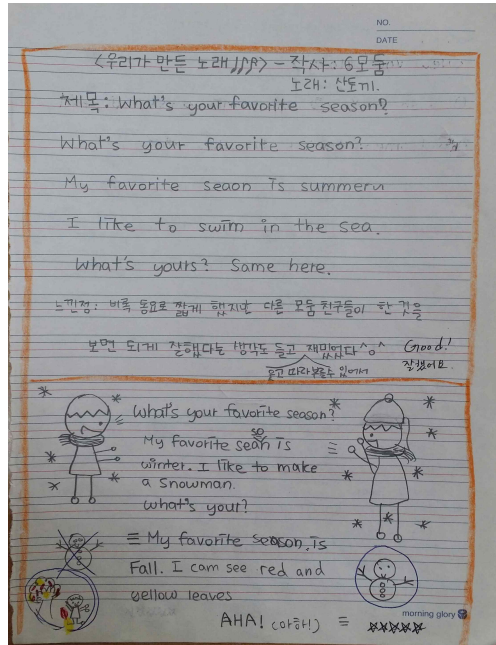 NO.
DATE
<우리가 만든 노래> - 작사: 6모둠
노래: 산토끼.
제목: What's your favorite season?
What's your favorite season?
My favorite seaon is summer
I like to swim in the sea.
What's yours? Same here.
느낀점: 비록 동요로 짧게 했지만 다른 모둠 친구들이 한 것을
보면 되게 잘했다는 생각도 들고 재미있었다^o^ Good!
잘했어요
듣고 따라부를수 있어서
What's your favorite season?
My favorite sean is
so
winter. I like to make
a snowman.
What's your?
My favorite season is
Fall. I cam see red and
yellow leaves
morning glory
AHA! (아하!)